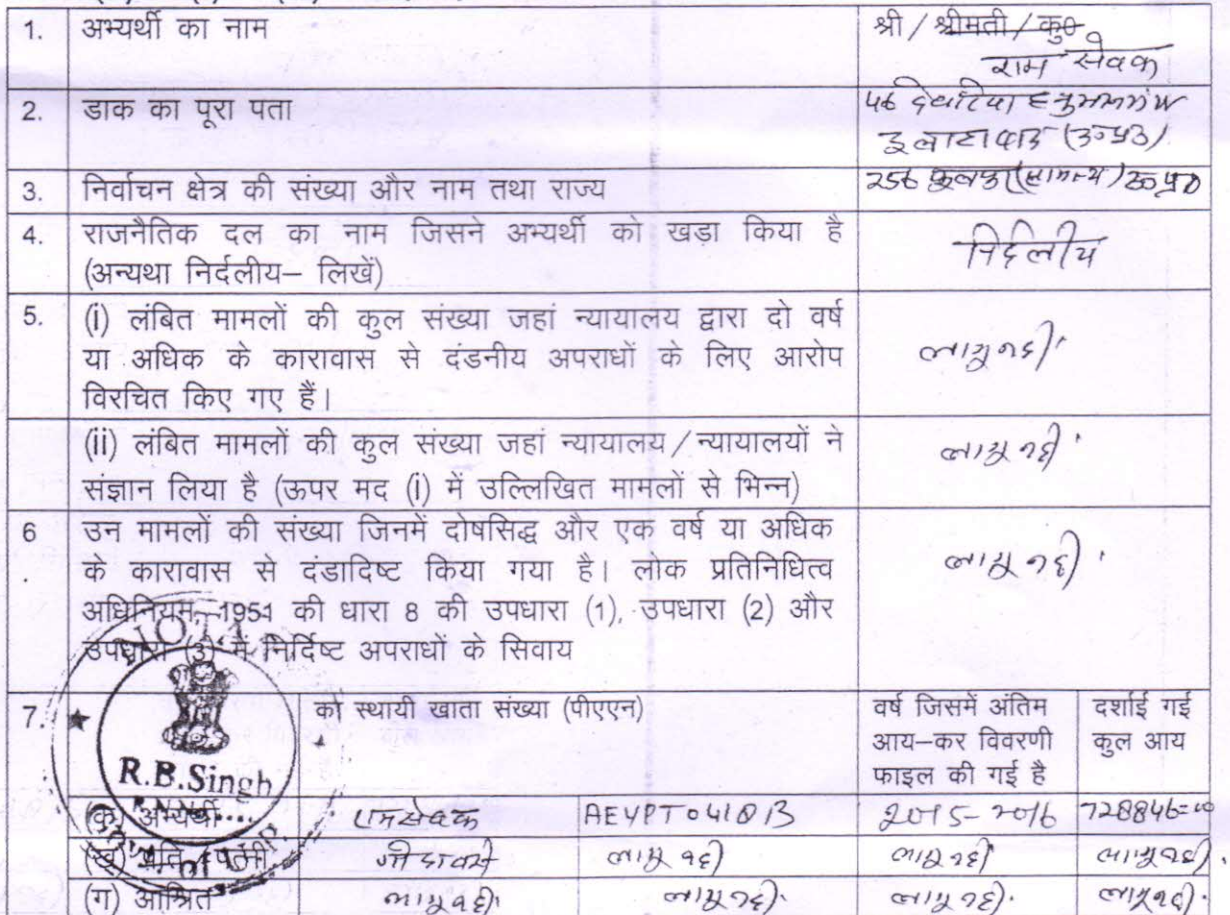 1. अभ्यर्थी का नाम श्री / श्रीमती / कु०
राम सेवक
2. डाक का पूरा पता 46 देवरिया हनुमानगंज
इलाहाबाद (उ०प्र०)
3. निर्वाचन क्षेत्र की संख्या और नाम तथा राज्य 256 फूलपुर (सामान्य) उ०प्र०
4. राजनैतिक दल का नाम जिसने अभ्यर्थी को खड़ा किया है
(अन्यथा निर्दलीय– लिखें) निर्दलीय
5. (i) लंबित मामलों की कुल संख्या जहां न्यायालय द्वारा दो वर्ष
या अधिक के कारावास से दंडनीय अपराधों के लिए आरोप लागू नहीं
विरचित किए गए हैं।
(ii) लंबित मामलों की कुल संख्या जहां न्यायालय/न्यायालयों ने लागू नहीं
संज्ञान लिया है (ऊपर मद (i) में उल्लिखित मामलों से भिन्न)
6 उन मामलों की संख्या जिनमें दोषसिद्ध और एक वर्ष या अधिक
के कारावास से दंडादिष्ट किया गया है। लोक प्रतिनिधित्व लागू नहीं
अधिनियम, 1951 की धारा 8 की उपधारा (1), उपधारा (2) और
उपधारा (3) में निर्दिष्ट अपराधों के सिवाय
7. की स्थायी खाता संख्या (पीएएन) वर्ष जिसमें अंतिम दर्शाई गई
आय–कर विवरणी कुल आय
फाइल की गई है
R.B.Singh
(क) अभ्यर्थी रामसेवक 2015-2016 728846=00
(ख) पति / पत्नी लागू नहीं लागू नहीं लागू नहीं
(ग) आश्रित लागू नहीं लागू नहीं लागू नहीं लागू नहीं